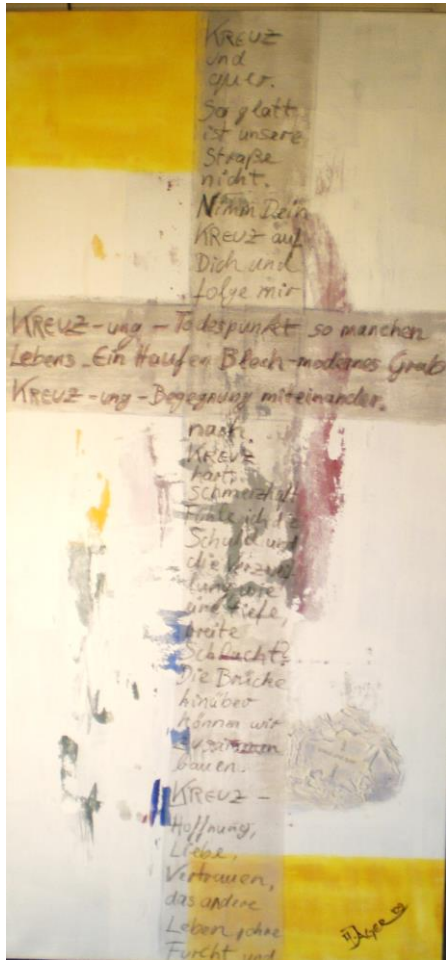 KREUZ
und
quer.
So glatt
ist unsere
Straße
nicht.
Nimm Dein
KREUZ auf
Dich und
folge mir
KREUZ-ung - Todespunkt so manchen
Lebens. Ein Haufen Blech-modernes Grab
KREUZ-ung-Begegnung miteinander.
nach.
KREUZ
hart,
schmerzhaft
Fühle ich
Schuld und
die
und tiefe,
breite
Schlucht?
Die Brücke
hinüber
können wir
zusammen
bauen.
KREUZ-
Hoffnung,
Liebe,
Vertrauen,
das andere
Leben, ohne
Furcht und
Jäger